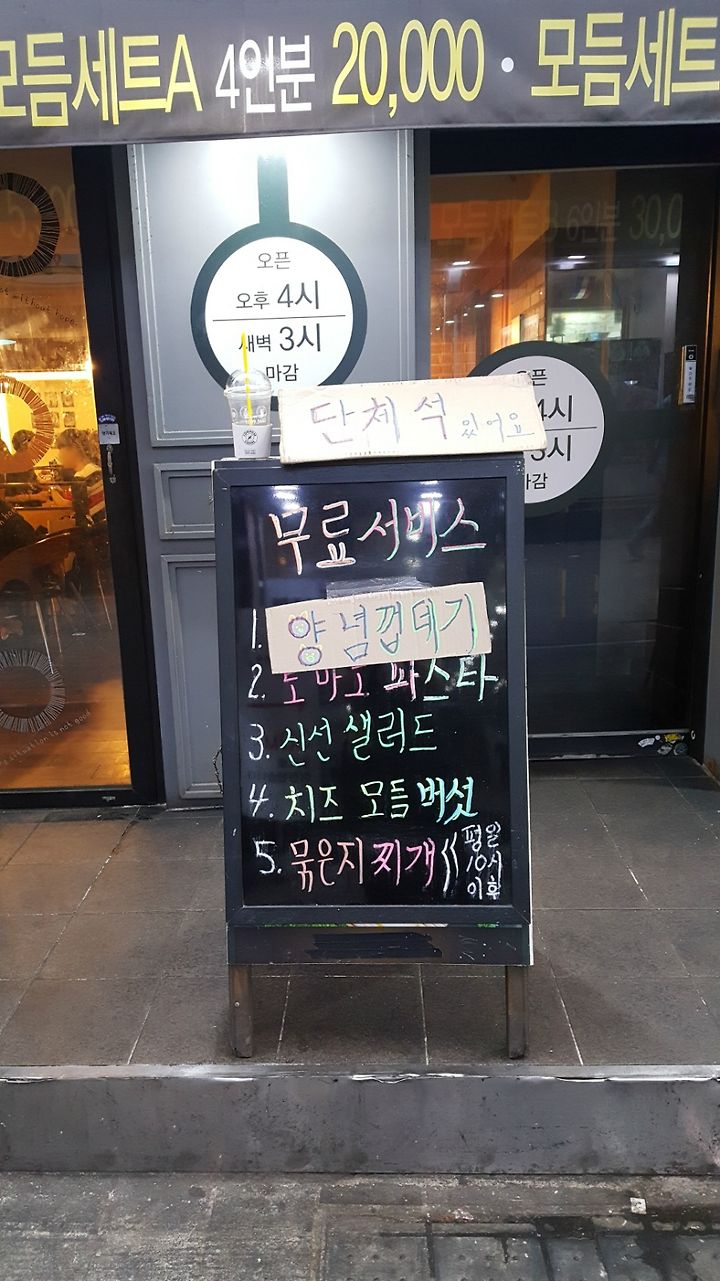 모듬세트A 4인분 20,000 · 모듬세트
모듬세트B 6인분 30,0
오픈
오후 4시
새벽 3시
마감
오픈
4시
3시
마감
단체석 있어요
무료서비스
1. 양념껍데기
2. 토마토 파스타
3. 신선샐러드
4. 치즈 모듬버섯
5. 묵은지찌개 《 평일
10시
이후